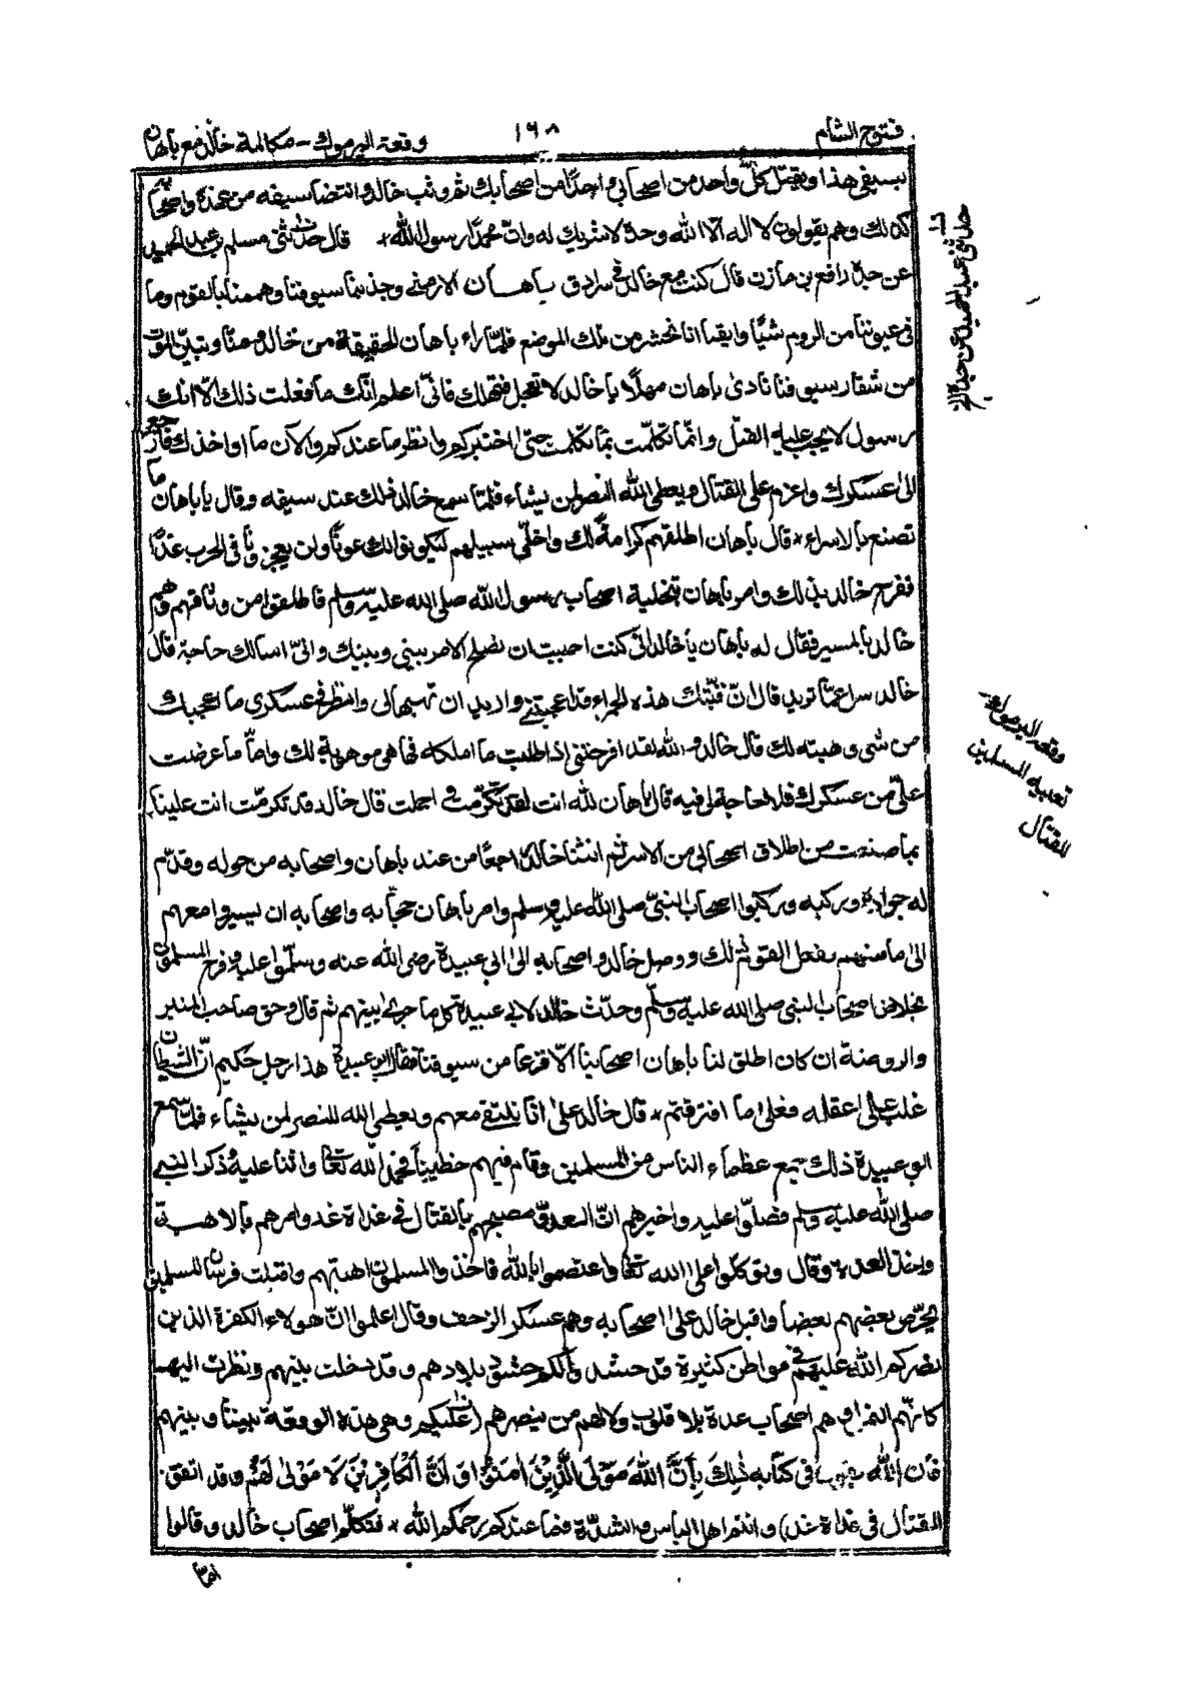 فتوح الشام
١٦٨
وقعة اليرموك - مكالمة خالد مع باهان
بسيفي هذا ويقتل كل واحد من اصحابي واحدًا من اصحابك ثم وثب خالد وانتضا سيفه من غمده واصحابه
كذلك وهم يقولون لا اله الّا الله وحدهٗ لا شريك له وانّ محمدًا رسول الله * قال حدثنى مسلم بن عبد الحميد
عن جدهٖ رافع بن مازن قال كنت مع خالد فى سرادق باهان الارمنى وجذبنا سيوفنا وهممنا بالقوم وما
فى عيوننا من الروم شيًا وايقنا انا نحشر من تلك الموضع فلمّا راء باهان الحقيقة من خالد ومنّا وتبيّن الموت
من شفار سيوفنا نادى باهان مهلًا يا خالد لا تعجل فتهلك فانّى اعلم انّك ما فعلت ذلك الّا انك
رسول لا يجب عليه القتل وانّما تكلّمت بما تكلمت حتى اختبركم وانظر ما عندكم والآن ما اواخذك فارجع
الىٰ عسكرك واعزم على القتال ويعطى الله النصر لمن يشاء فلمّا سمع خالد ذلك عند سيفه وقال يا باهان ما
تصنع بالاسراء * قال باهان اطلقهم كرامةً لك واخلّى سبيلهم ليكونوا لك عونًا ولن يعجزونا فى الحرب غدًا
ففرح خالد بذلك وامر باهان بتخلية اصحاب رسول الله صلى الله عليه وسلم فاطلقوا من وثاقهم وهم
خالد بالمسير فقال له باهان يا خالد انى كنت احببت ان نصلح الامر بينى وبينك وانّى اسالك حاجة قال
خالد سل عمّا تريد قال انّ قبّتك هذه الحمراء قد اعجبتنى واريد ان تهبها لى وانظر فى عسكرى ما اعجبك
من شى وهبته لك قال خالد والله لقد افرحتنى اذا طلبت ما املكه فها هى موهوبة لك وامّا ما عرضت
علىّ من عسكرك فلا حاجة لى فيه قال باهان لله انت لقد تكرّمت و اجملت قال خالد قد تكرمّت انت علينا
بما صنعت من اطلاق اصحابى من الاسر ثم انثنا خالد راجعًا من عند باهان واصحابه من حوله وقدّم
له جواده وركبه وركبوا اصحاب النبىّ صلى الله عليه وسلم وامر باهان حجّابه واصحابه ان يسيروا معهم
الىٰ مامنهم ففعل القوم ذلك ووصل خالد واصحابه الىٰ ابى عبيدة رضى الله عنه وسلّموا عليه وفرح المسلمون
بخلاص اصحاب النبى صلى الله عليه وسلّم وحدّث خالد لابى عبيدة كل ما جرىٰ بينهم ثم قال وحق صاحب المنبر
والروضة ان كان اطلق لنا باهان اصحابنا الّا فزعا من سيوفنا فقال ابو عبيدة هذا رجل حكيم انّ الشيطان
غلب علىٰ عقله فعلىٰ ما افترقتم * قال خالد علىٰ انّا نلتقى معهم ويعطى الله النصر لمن يشاء فلمّا سمع
ابو عبيدة ذلك جمع عظماء الناس من المسلمين وقام فيهم خطيبًا فحمد الله تعالىٰ واثنا عليه وذكر النبى
صلى الله عليه وسلم فصلّى عليه واخبرهم انّ العدو مصبحهم بالقتال فى غداة غد وامرهم بالاهبة
واخذ العدة وقال وتوكّلوا على الله تعالىٰ واعتصموا بالله فاخذوا المسلمون اهبتهم واقبلت فرسان المسلمين
يحرّض بعضهم بعضا واقبل خالد علىٰ اصحابه وهم عسكر الزحف وقال اعلموا انّ هولاء الكفرة الذين
نصركم الله عليهم فى مواطن كثيرة قد حشد والكم حشود بلادهم وقد دخلت بينهم ونظرت اليهم
كانّهم النمل وهم اصحاب عدة بلا قلوب ولا لهم من ينصرهم عليكم وهى هذه الوقعة بيننا وبينهم
فان الله يقول فى كتابه ذٰلِكَ بِاَنَّ اللهَ مَوْلَى الَّذِيْنَ اٰمَنُوْا وَ اَنَّ الْكَافِرِيْنَ لَا مَوْلىٰ لَهُمْ وقد اتفق
القتال فى غداة غد وانتم اهل الباس والشدّة فما عندكم رحمكم الله * فتكلّموا اصحاب خالد وقالوا
وقعة اليرموك
تعبية المسلمين
للقتال